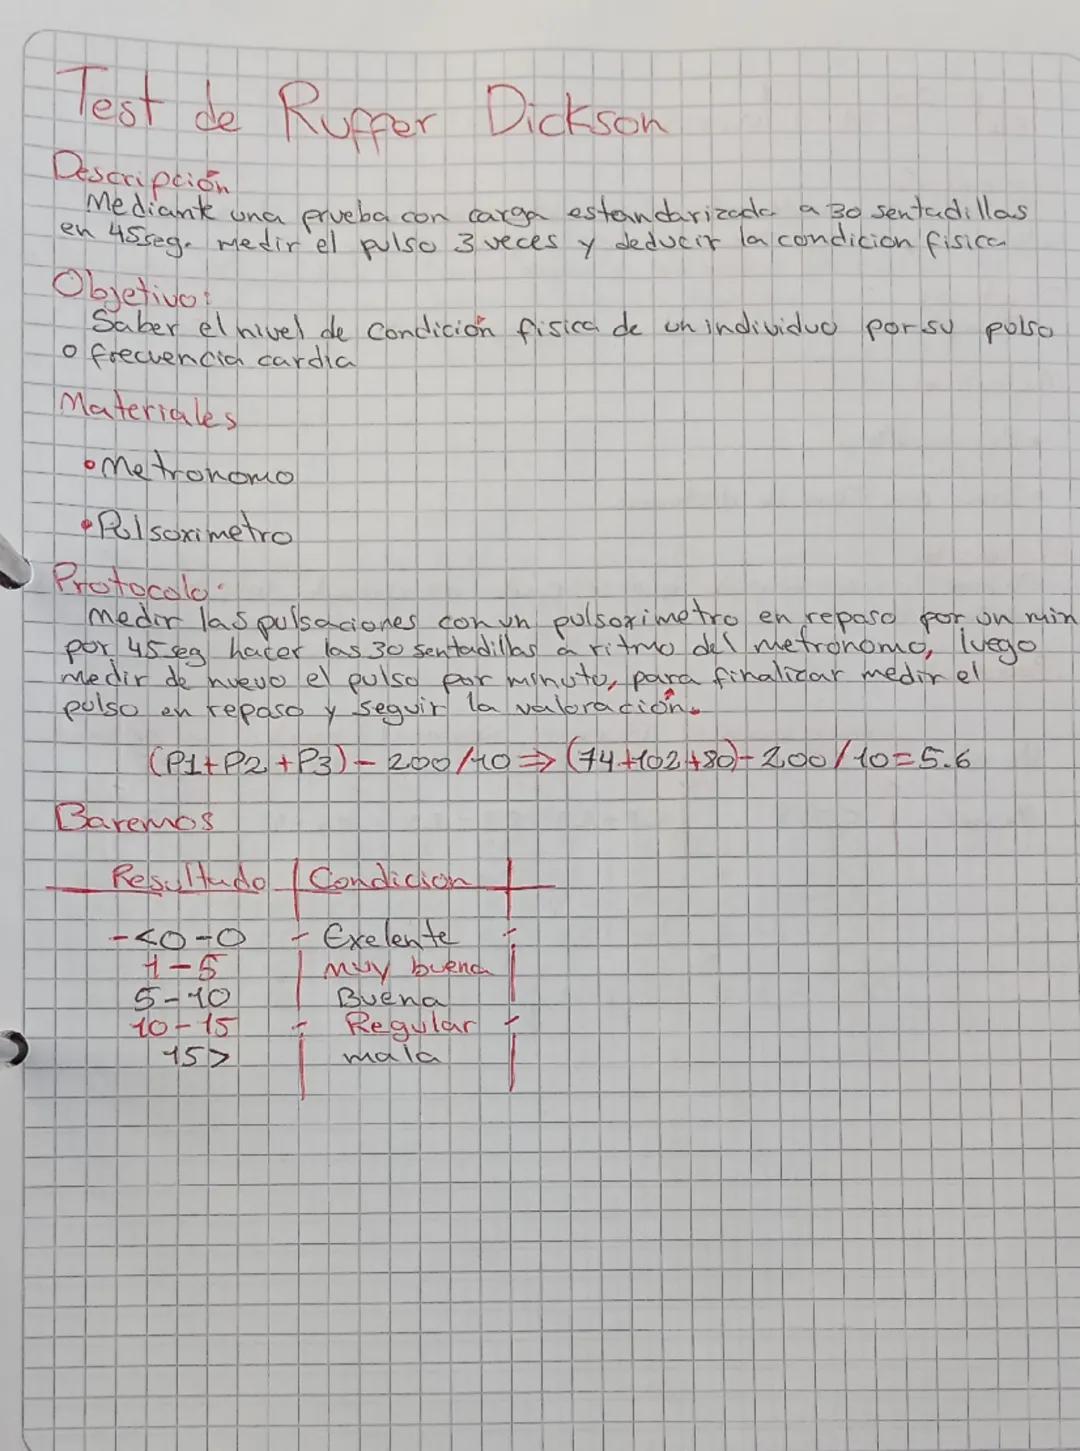 Test de Ruffer Dickson
Descripción
Mediante una prueba con carga estandarizada a 30 sentadillas
en 45seg. medir el pulso 3 veces y deducir la condicion fisica
Objetivo:
Saber el nivel de Condición fisica de un individuo por su pulso
o frecuencia cardia
Materiales
• Metronomo
• Pulsoximetro
Protocolo.
Medir las pulsaciones con un pulsoximetro en reposo por un min
por 45 seg hacer las 30 sentadillas a ritmo del metronomo, luego
medir de nuevo el pulso por minuto, para finalizar medir el
pulso en reposo y seguir la valoración.
(P1+P2+P3)-200/10⇒(74+102+80)-200/10=5.6
Baremos
Resultado | Condicion |
-<0-0 - Exelente -
1-5 | muy buena |
5-10 Buena
10-15 - Regular -
15> | mala |